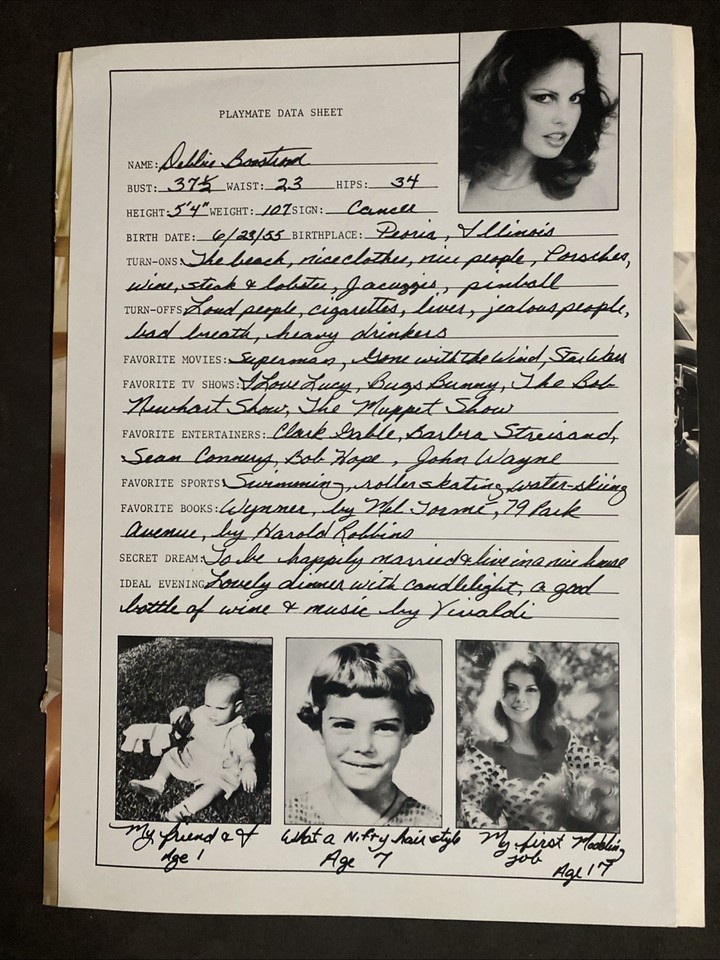 PLAYMATE DATA SHEET
NAME: Debbie Boostrom
BUST: 37½ WAIST: 23 HIPS: 34
HEIGHT: 5'4" WEIGHT: 107 SIGN: Cancer
BIRTH DATE: 6/23/55 BIRTHPLACE: Peoria, Illinois
TURN-ONS: The beach, nice clothes, nice people, Porsches,
wine, steak & lobster, Jacuzzis, pinball
TURN-OFFS: Loud people, cigarettes, liver, jealous people,
bad breath, heavy drinkers
FAVORITE MOVIES: Superman, Gone with the Wind, Star Wars
FAVORITE TV SHOWS: I Love Lucy, Bugs Bunny, The Bob
Newhart Show, The Muppet Show
FAVORITE ENTERTAINERS: Clark Gable, Barbra Streisand,
Sean Connery, Bob Hope, John Wayne
FAVORITE SPORTS: Swimming, roller skating, water-skiing
FAVORITE BOOKS: Wynner, by Mel Tormé, 79 Park
Avenue, by Harold Robbins
SECRET DREAM: To be happily married & live in a nice house
IDEAL EVENING: Lovely dinner with candlelight, a good
bottle of wine & music by Vivaldi
My friend & I
Age 1
What a Nifty hair style
Age 7
My first Modeling
job
Age 17